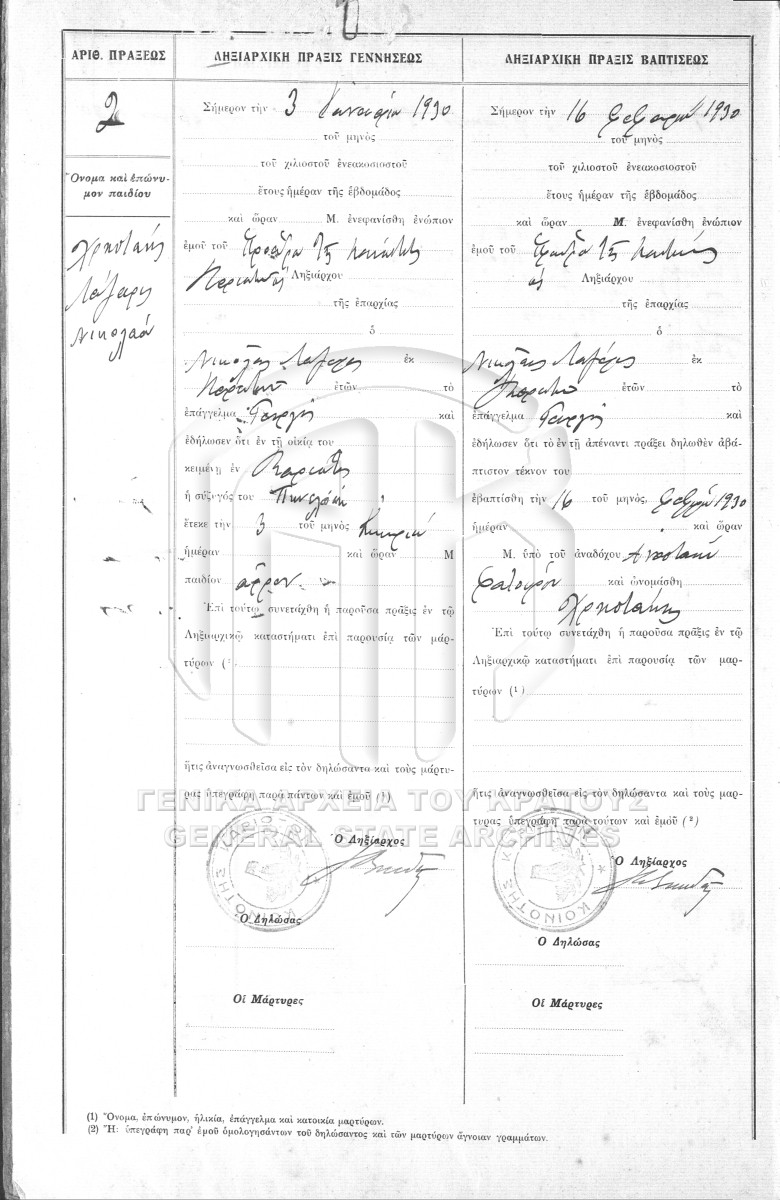 ΑΡΙΘ. ΠΡΑΞΕΩΣ
2
Ὄνομα καὶ ἐπώνυ-
μον παιδίου
Χρηστάκης
Λάζαρης
Νικολάου
ΛΗΞΙΑΡΧΙΚΗ ΠΡΑΞΙΣ ΓΕΝΝΗΣΕΩΣ
Σήμερον τὴν 3 Ἰανουαρίου 1930
τοῦ μηνὸς
τοῦ χιλιοστοῦ ἐνεακοσιοστοῦ
ἔτους ἡμέραν τῆς ἑβδομάδος
καὶ ὥραν Μ. ἐνεφανίσθη ἐνώπιον
ἐμοῦ τοῦ Προέδρου τῆς
Ληξιάρχου
τῆς ἐπαρχίας
ὁ
Νικόλαος Λάζαρης ἐκ
ἐτῶν τὸ
ἐπάγγελμα Γεωργὸς καὶ
ἐδήλωσεν ὅτι ἐν τῇ οἰκίᾳ του
κειμένῃ ἐν
ἡ σύζυγός του Πηνελόπη
ἔτεκε τὴν 3 τοῦ μηνὸς
ἡμέραν καὶ ὥραν Μ
παιδίον ἄρρεν
Ἐπὶ τούτῳ συνετάχθη ἡ παροῦσα πρᾶξις ἐν τῷ
Ληξιαρχικῷ καταστήματι ἐπὶ παρουσίᾳ τῶν μάρ-
τύρων (¹
ἥτις ἀναγνωσθεῖσα εἰς τὸν δηλώσαντα καὶ τοὺς μάρτυ-
ρας ὑπεγράφη παρὰ πάντων καὶ ἐμοῦ (²)
Ὁ Ληξίαρχος
Ὁ Δηλώσας
Οἱ Μάρτυρες
ΛΗΞΙΑΡΧΙΚΗ ΠΡΑΞΙΣ ΒΑΠΤΙΣΕΩΣ
Σήμερον τὴν 16 Φεβρουαρίου 1930
τοῦ μηνὸς
τοῦ χιλιοστοῦ ἐνεακοσιοστοῦ
ἔτους ἡμέραν τῆς ἑβδομάδος
καὶ ὥραν Μ. ἐνεφανίσθη ἐνώπιον
ἐμοῦ τοῦ Προέδρου τῆς
Ληξιάρχου
τῆς ἐπαρχίας
ὁ
Νικόλαος Λάζαρης ἐκ
ἐτῶν τὸ
ἐπάγγελμα Γεωργὸς καὶ
ἐδήλωσεν ὅτι τὸ ἐν τῇ ἀπέναντι πράξει δηλωθὲν ἀβά-
πτιστον τέκνον του
ἐβαπτίσθη τὴν 16 τοῦ μηνὸς, 1930
ἡμέραν καὶ ὥραν
Μ. ὑπὸ τοῦ ἀναδόχου
καὶ ὠνομάσθη
Χρηστάκης
Ἐπὶ τούτῳ συνετάχθη ἡ παροῦσα πρᾶξις ἐν τῷ
Ληξιαρχικῷ καταστήματι ἐπὶ παρουσίᾳ τῶν μαρ-
τύρων (¹)
ἥτις ἀναγνωσθεῖσα εἰς τὸν δηλώσαντα καὶ τοὺς μάρ-
τυρας ὑπεγράφη παρὰ τούτων καὶ ἐμοῦ (²)
Ὁ Ληξίαρχος
Ὁ Δηλώσας
Οἱ Μάρτυρες
ΓΕΝΙΚΑ ΑΡΧΕΙΑ ΤΟΥ ΚΡΑΤΟΥΣ
GENERAL STATE ARCHIVES
ΚΟΙΝΟΤΗΣ
(1) Ὄνομα, ἐπώνυμον, ἡλικία, ἐπάγγελμα καὶ κατοικία μαρτύρων.
(2) Ἢ: ὑπεγράφη παρ' ἐμοῦ ὁμολογησάντων τοῦ δηλώσαντος καὶ τῶν μαρτύρων ἄγνοιαν γραμμάτων.